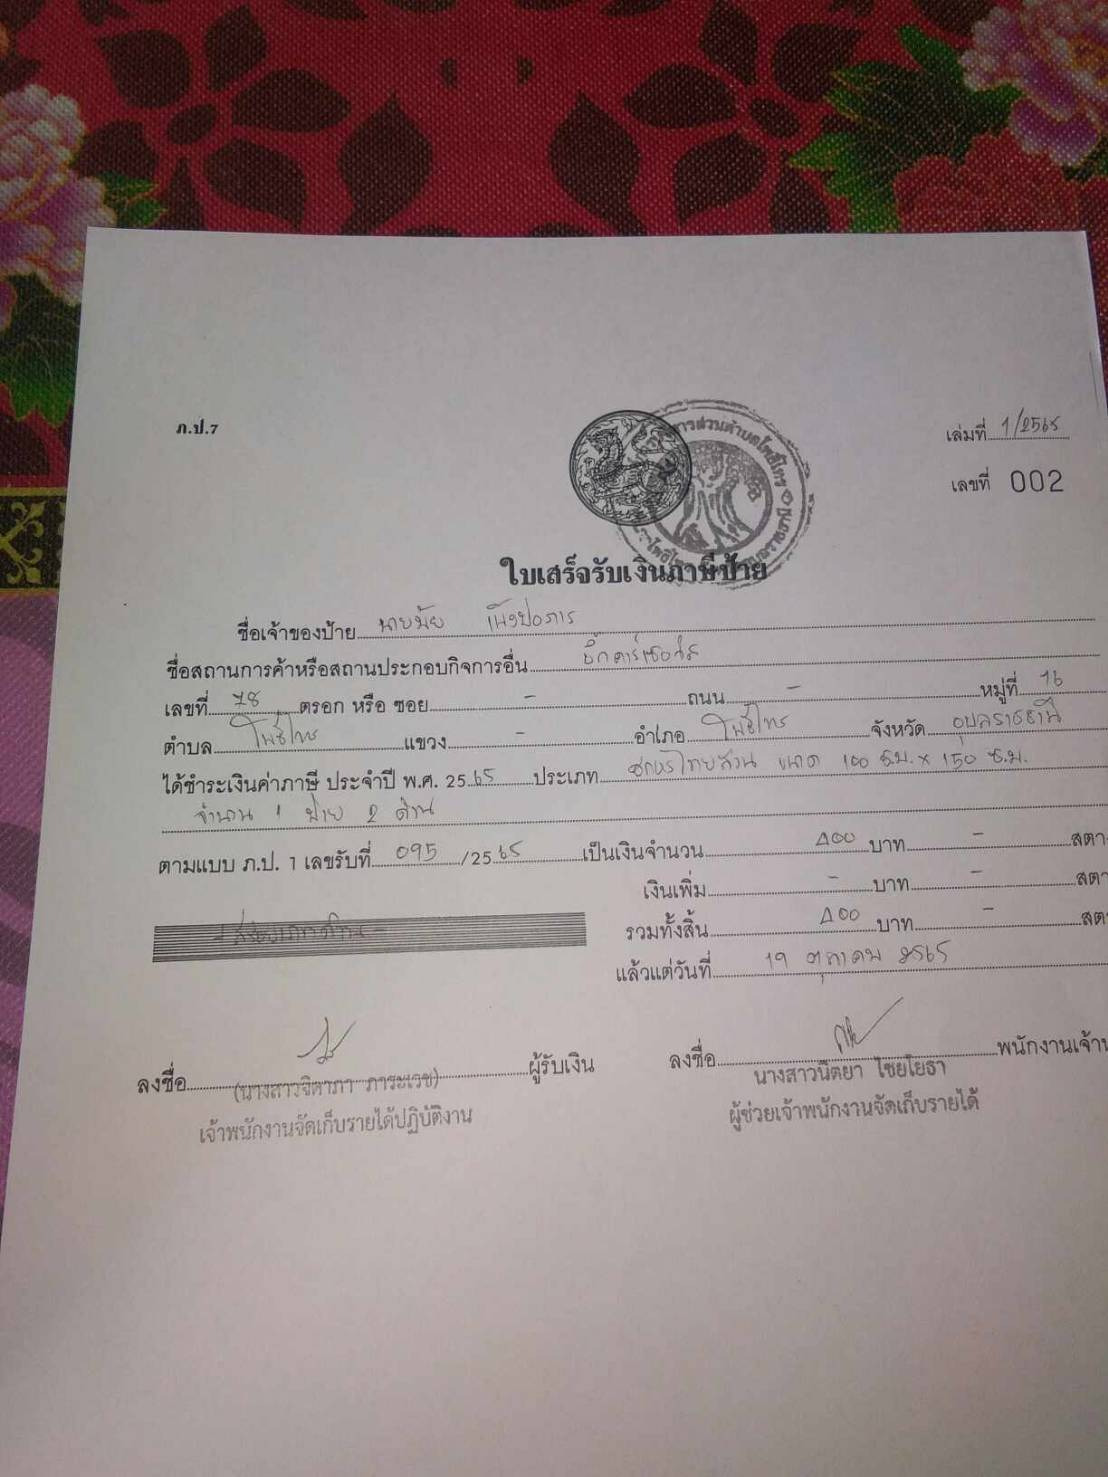 ภ.ป.7
เล่มที่ 1/2565
เลขที่ 002
ใบเสร็จรับเงินภาษีป้าย
ชื่อเจ้าของป้าย นายมัย
ชื่อสถานการค้าหรือสถานประกอบกิจการอื่น
เลขที่ 78 ตรอก หรือ ซอย - ถนน - หมู่ที่ 16
ตำบล โพธิ์ไทร แขวง - อำเภอ โพธิ์ไทร จังหวัด อุบลราชธานี
ได้ชำระเงินค่าภาษี ประจำปี พ.ศ. 2565 ประเภท อักษรไทยล้วน ขนาด 100 ซ.ม. x 150 ซ.ม.
จำนวน 1 ป้าย 2 ด้าน
ตามแบบ ภ.ป. 1 เลขรับที่ 095 /2565 เป็นเงินจำนวน 200 บาท - สตา
เงินเพิ่ม - บาท - สตา
รวมทั้งสิ้น 200 บาท - สตา
- สองร้อยบาทถ้วน -
แล้วแต่วันที่ 19 ตุลาคม 2565
ลงชื่อ ผู้รับเงิน
(นางสาวจิดาภา ภาระเวช)
เจ้าพนักงานจัดเก็บรายได้ปฏิบัติงาน
ลงชื่อ พนักงานเจ้าห
นางสาวนิตยา ไชยโยธา
ผู้ช่วยเจ้าพนักงานจัดเก็บรายได้